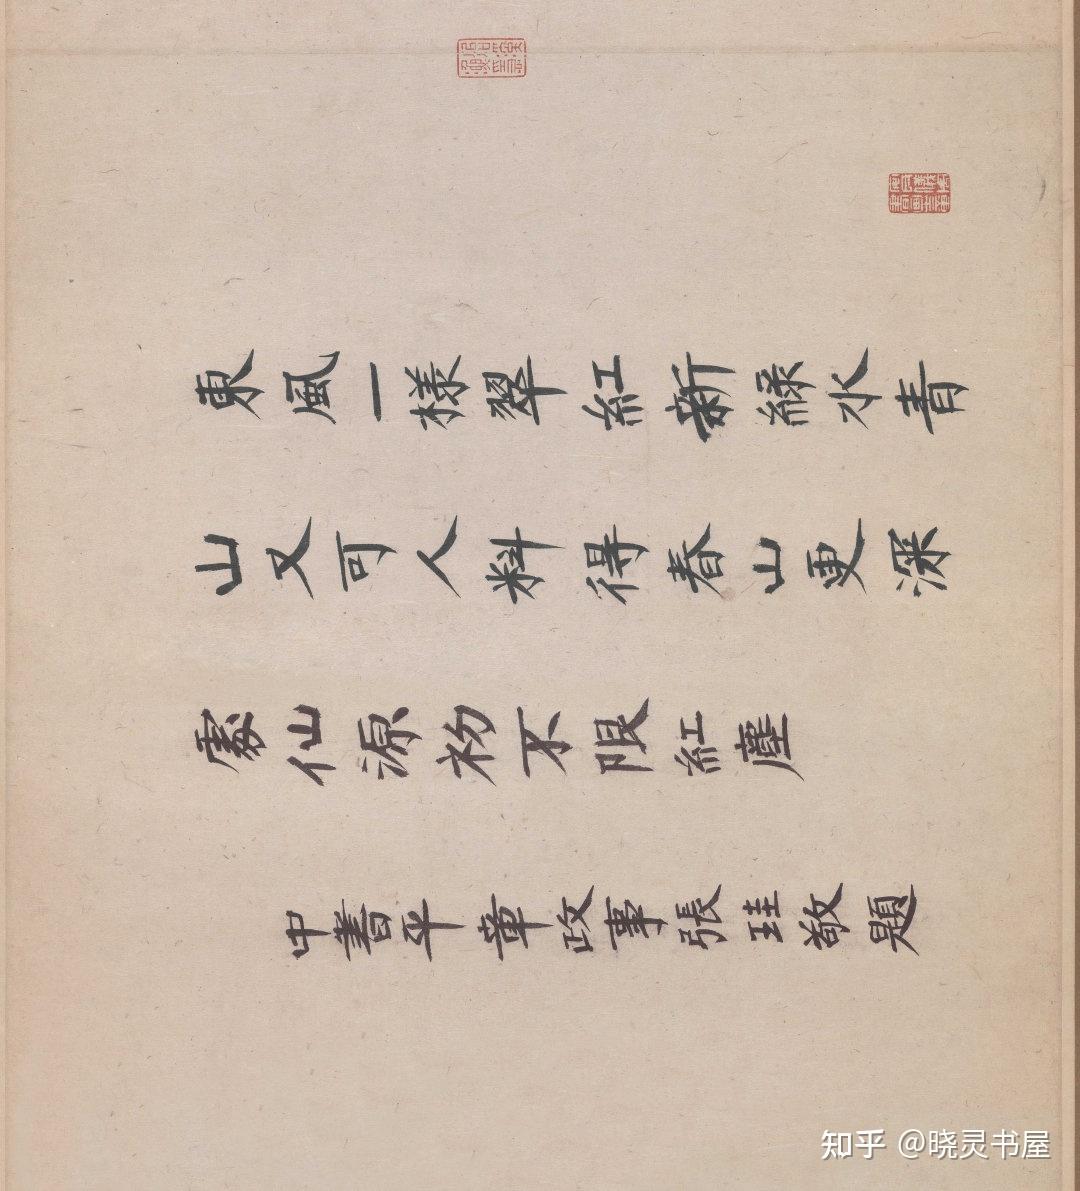 東風一樣翠紅新綠水青
山又可人料得春山更深
處仙源初不限紅塵
中書平章政事張珪敬題
知乎 @晓灵书屋